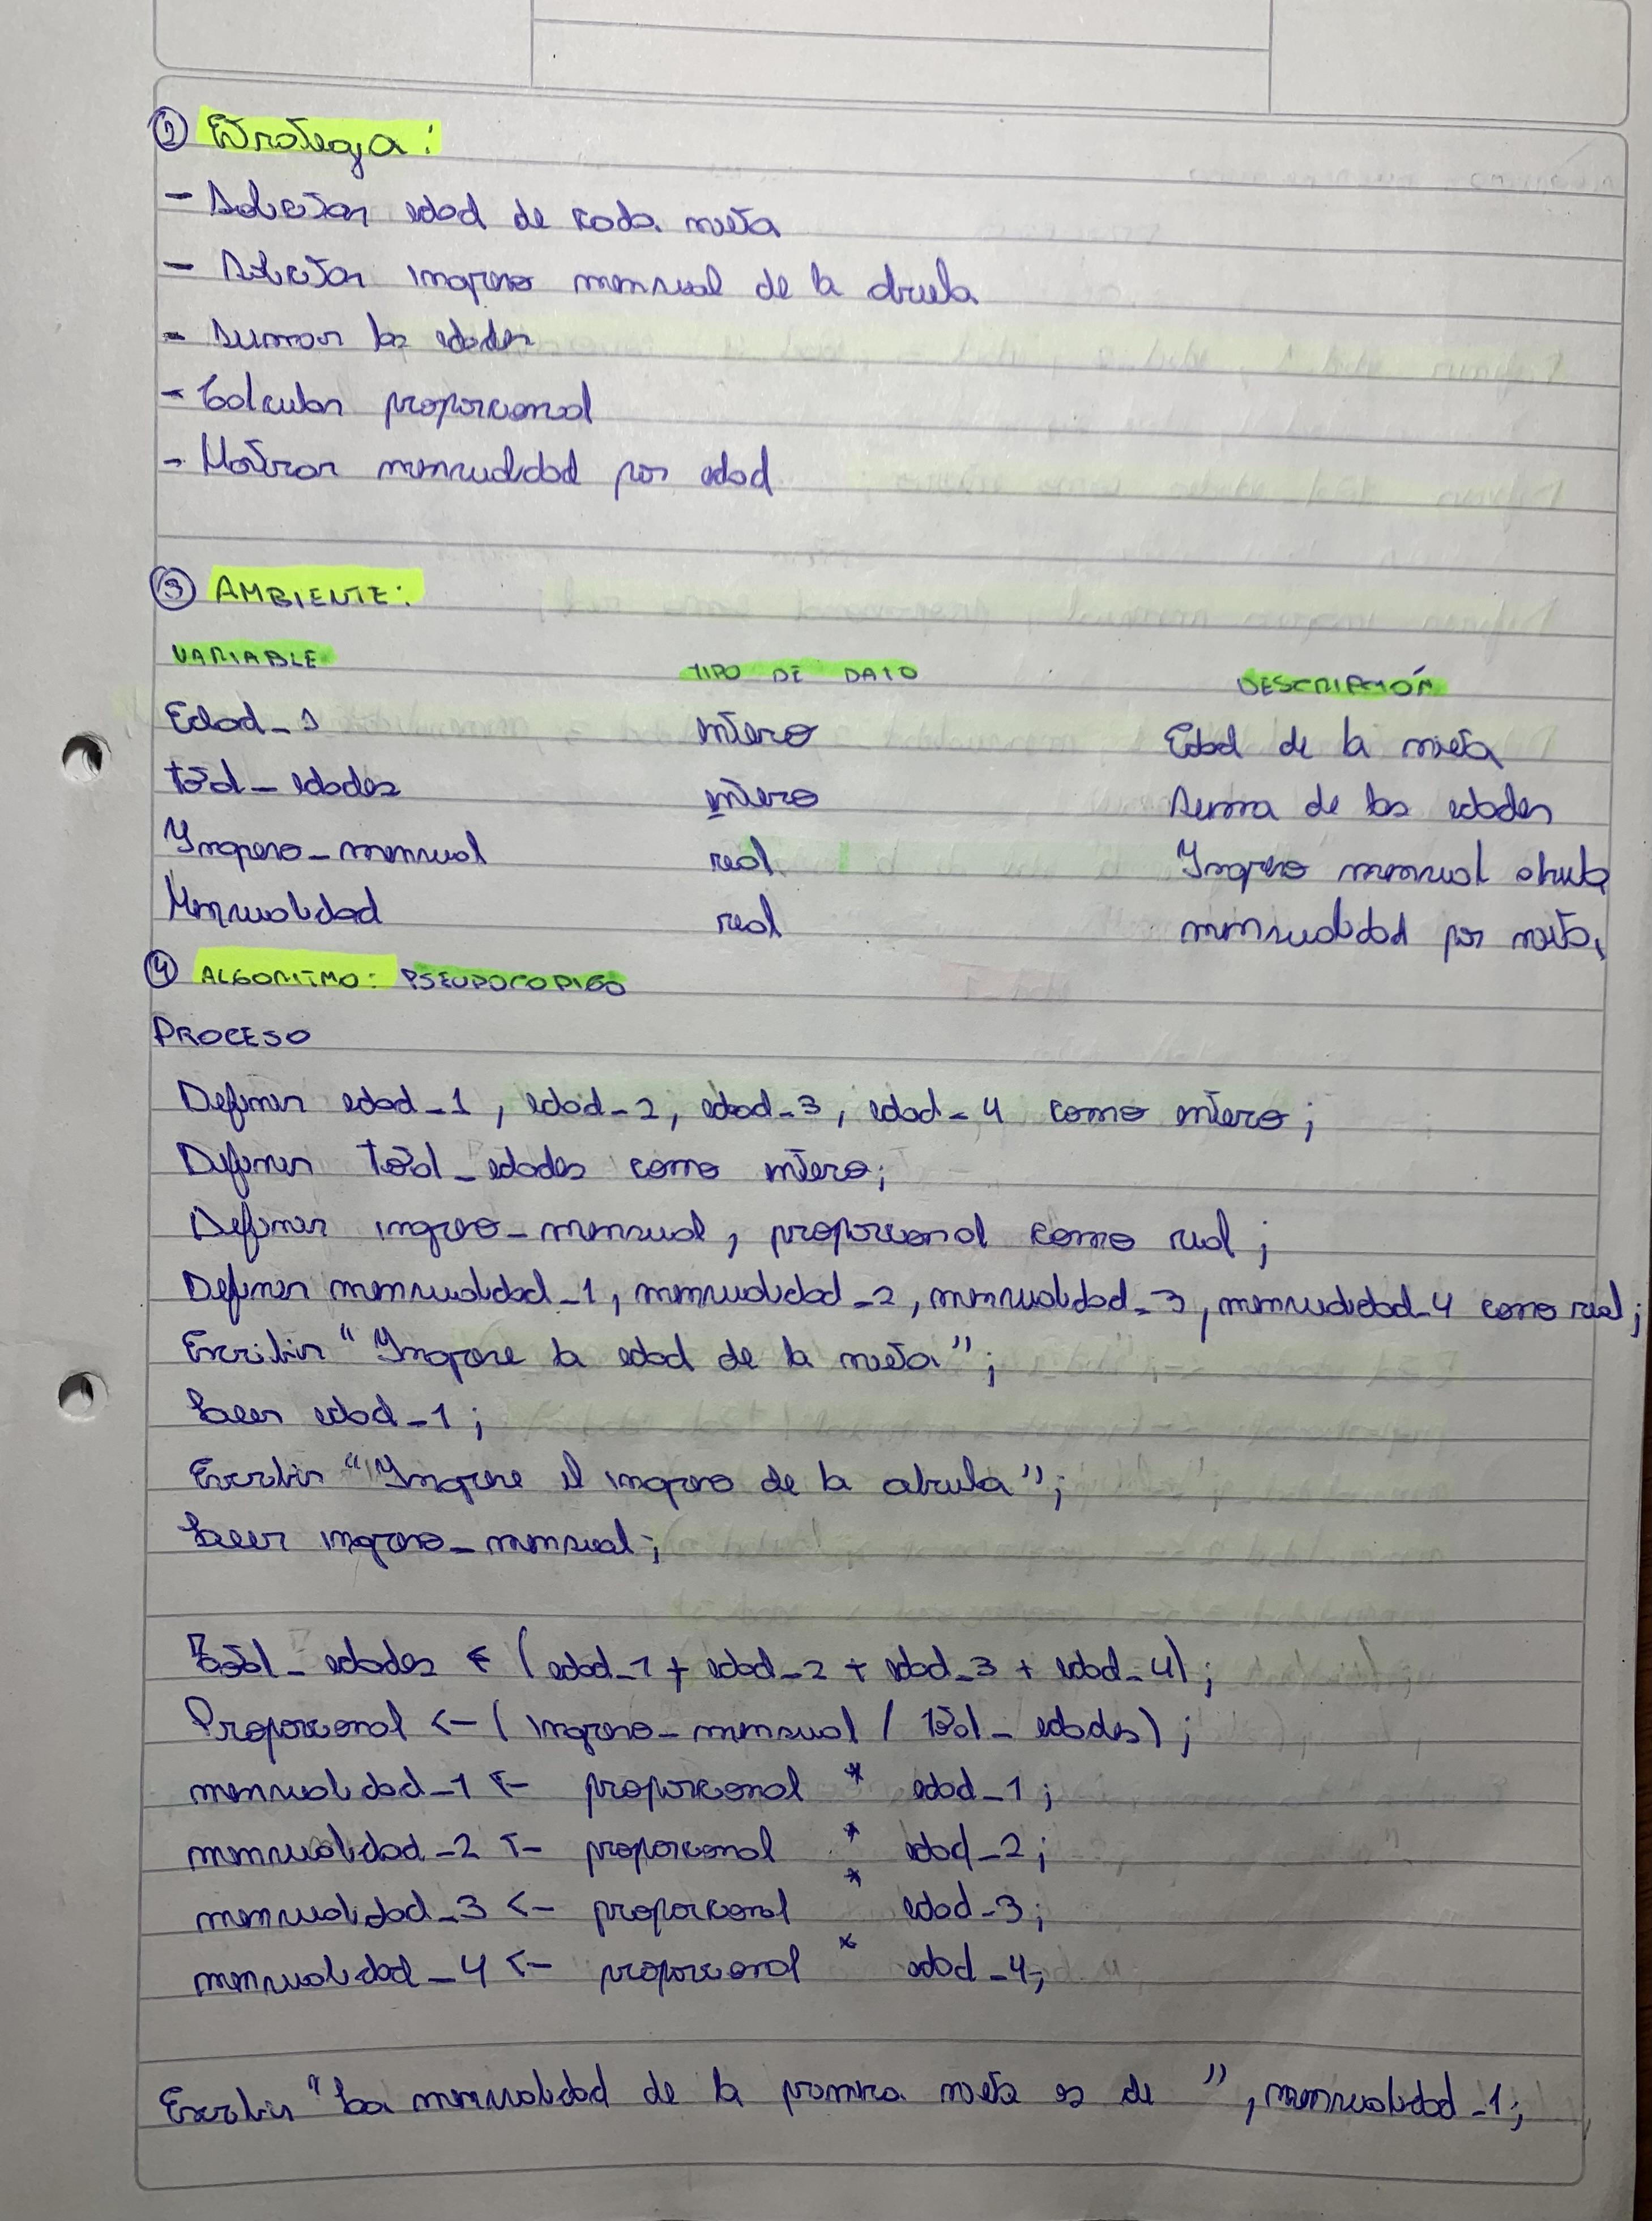 ② Estrategia:
- Solicitar edad de cada nieta
- Solicitar ingreso mensual de la abuela
- Sumar las edades
- Calcular proporcional
- Mostrar mensualidad por edad
③ AMBIENTE:
VARIABLE TIPO DE DATO DESCRIPCIÓN
Edad_1 entero Edad de la nieta
total_edades entero Suma de las edades
Ingreso_mensual real Ingreso mensual abuela
Mensualidad real mensualidad por nieta.
④ ALGORITMO: PSEUDOCODIGO
PROCESO
Definir edad_1, edad_2, edad_3, edad_4 como entero;
Definir total_edades como entero;
Definir ingreso_mensual, proporcional como real;
Definir mensualidad_1, mensualidad_2, mensualidad_3, mensualidad_4 como real;
Escribir "Ingrese la edad de la nieta";
Leer edad_1;
Escribir "Ingrese el ingreso de la abuela";
Leer ingreso_mensual;
Total_edades <- (edad_1 + edad_2 + edad_3 + edad_4);
Proporcional <- (ingreso_mensual / total_edades);
mensualidad_1 <- proporcional * edad_1;
mensualidad_2 <- proporcional * edad_2;
mensualidad_3 <- proporcional * edad_3;
mensualidad_4 <- proporcional * edad_4;
Escribir "La mensualidad de la primera nieta es de ", mensualidad_1;